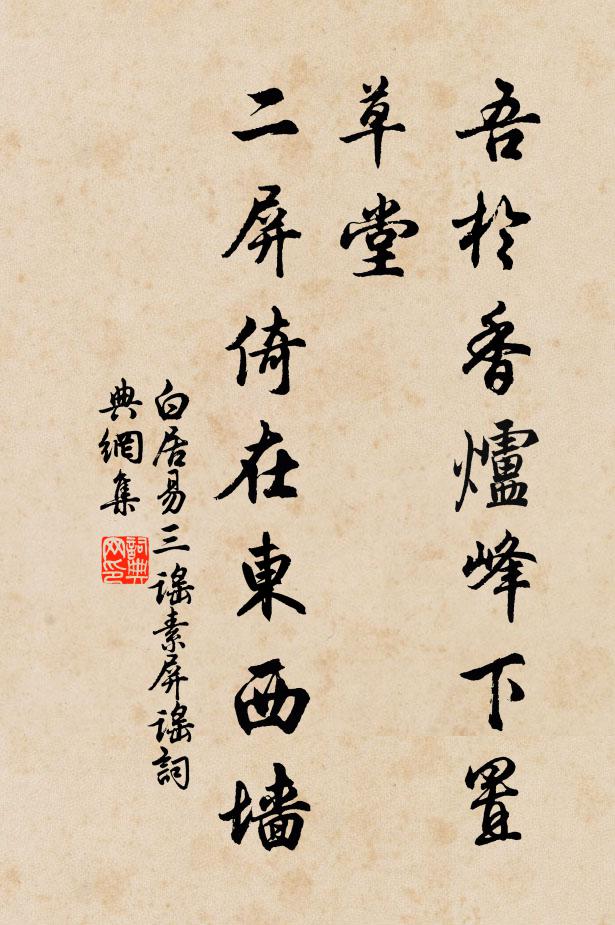 吾於香爐峰下置
草堂
二屏倚在東西墻
白居易三謠素屏謠詞
典網集
詞典
网印